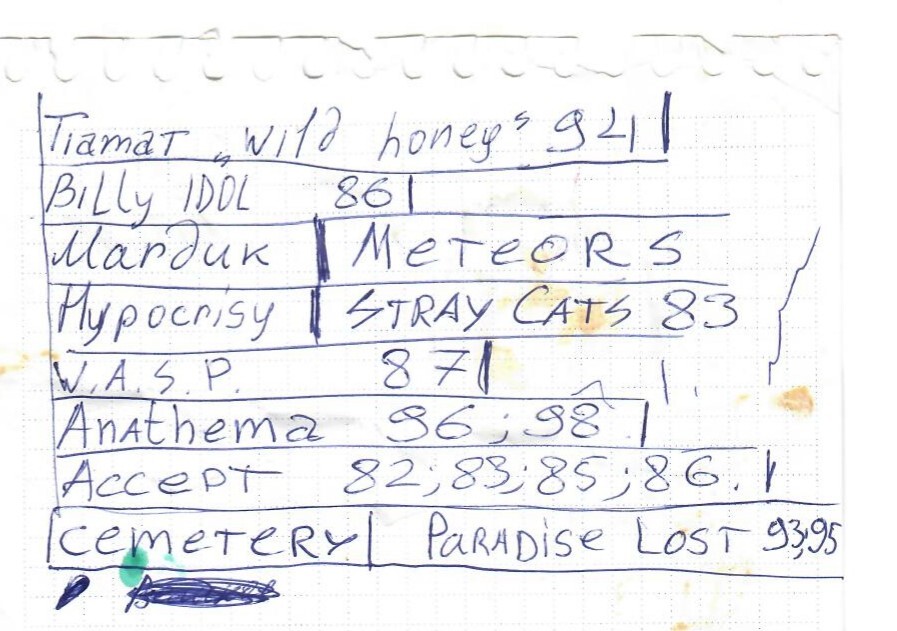 Tiamat „Wild honey" 94
Billy IDOL 86
Marduk METEORS
Hypocrisy STRAY CATS 83
W.A.S.P. 87
Anathema 96; 98
Accept 82; 83; 85; 86.
CEMETERY PARADISE LOST 93;95